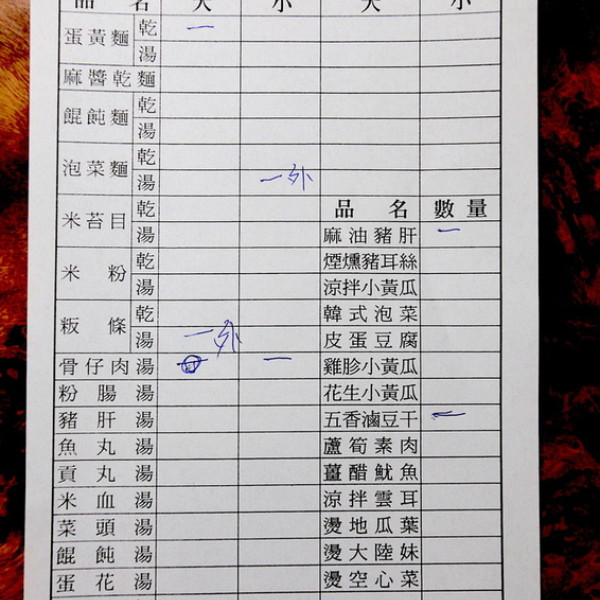 品 名 大 小 大 小
蛋黃麵 乾 一
湯
麻醬乾麵
餛飩麵 乾
湯
泡菜麵 乾
湯 一外
米苔目 乾 品名 數量
湯 麻油豬肝 一
米粉 乾 煙燻豬耳絲
湯 涼拌小黃瓜
粄條 乾 韓式泡菜
湯 一外 皮蛋豆腐
骨仔肉湯 一 雞胗小黃瓜
粉腸湯 花生小黃瓜
豬肝湯 五香滷豆干 一
魚丸湯 蘆筍素肉
貢丸湯 薑醋魷魚
米血湯 涼拌雲耳
菜頭湯 燙地瓜葉
餛飩湯 燙大陸妹
蛋花湯 燙空心菜